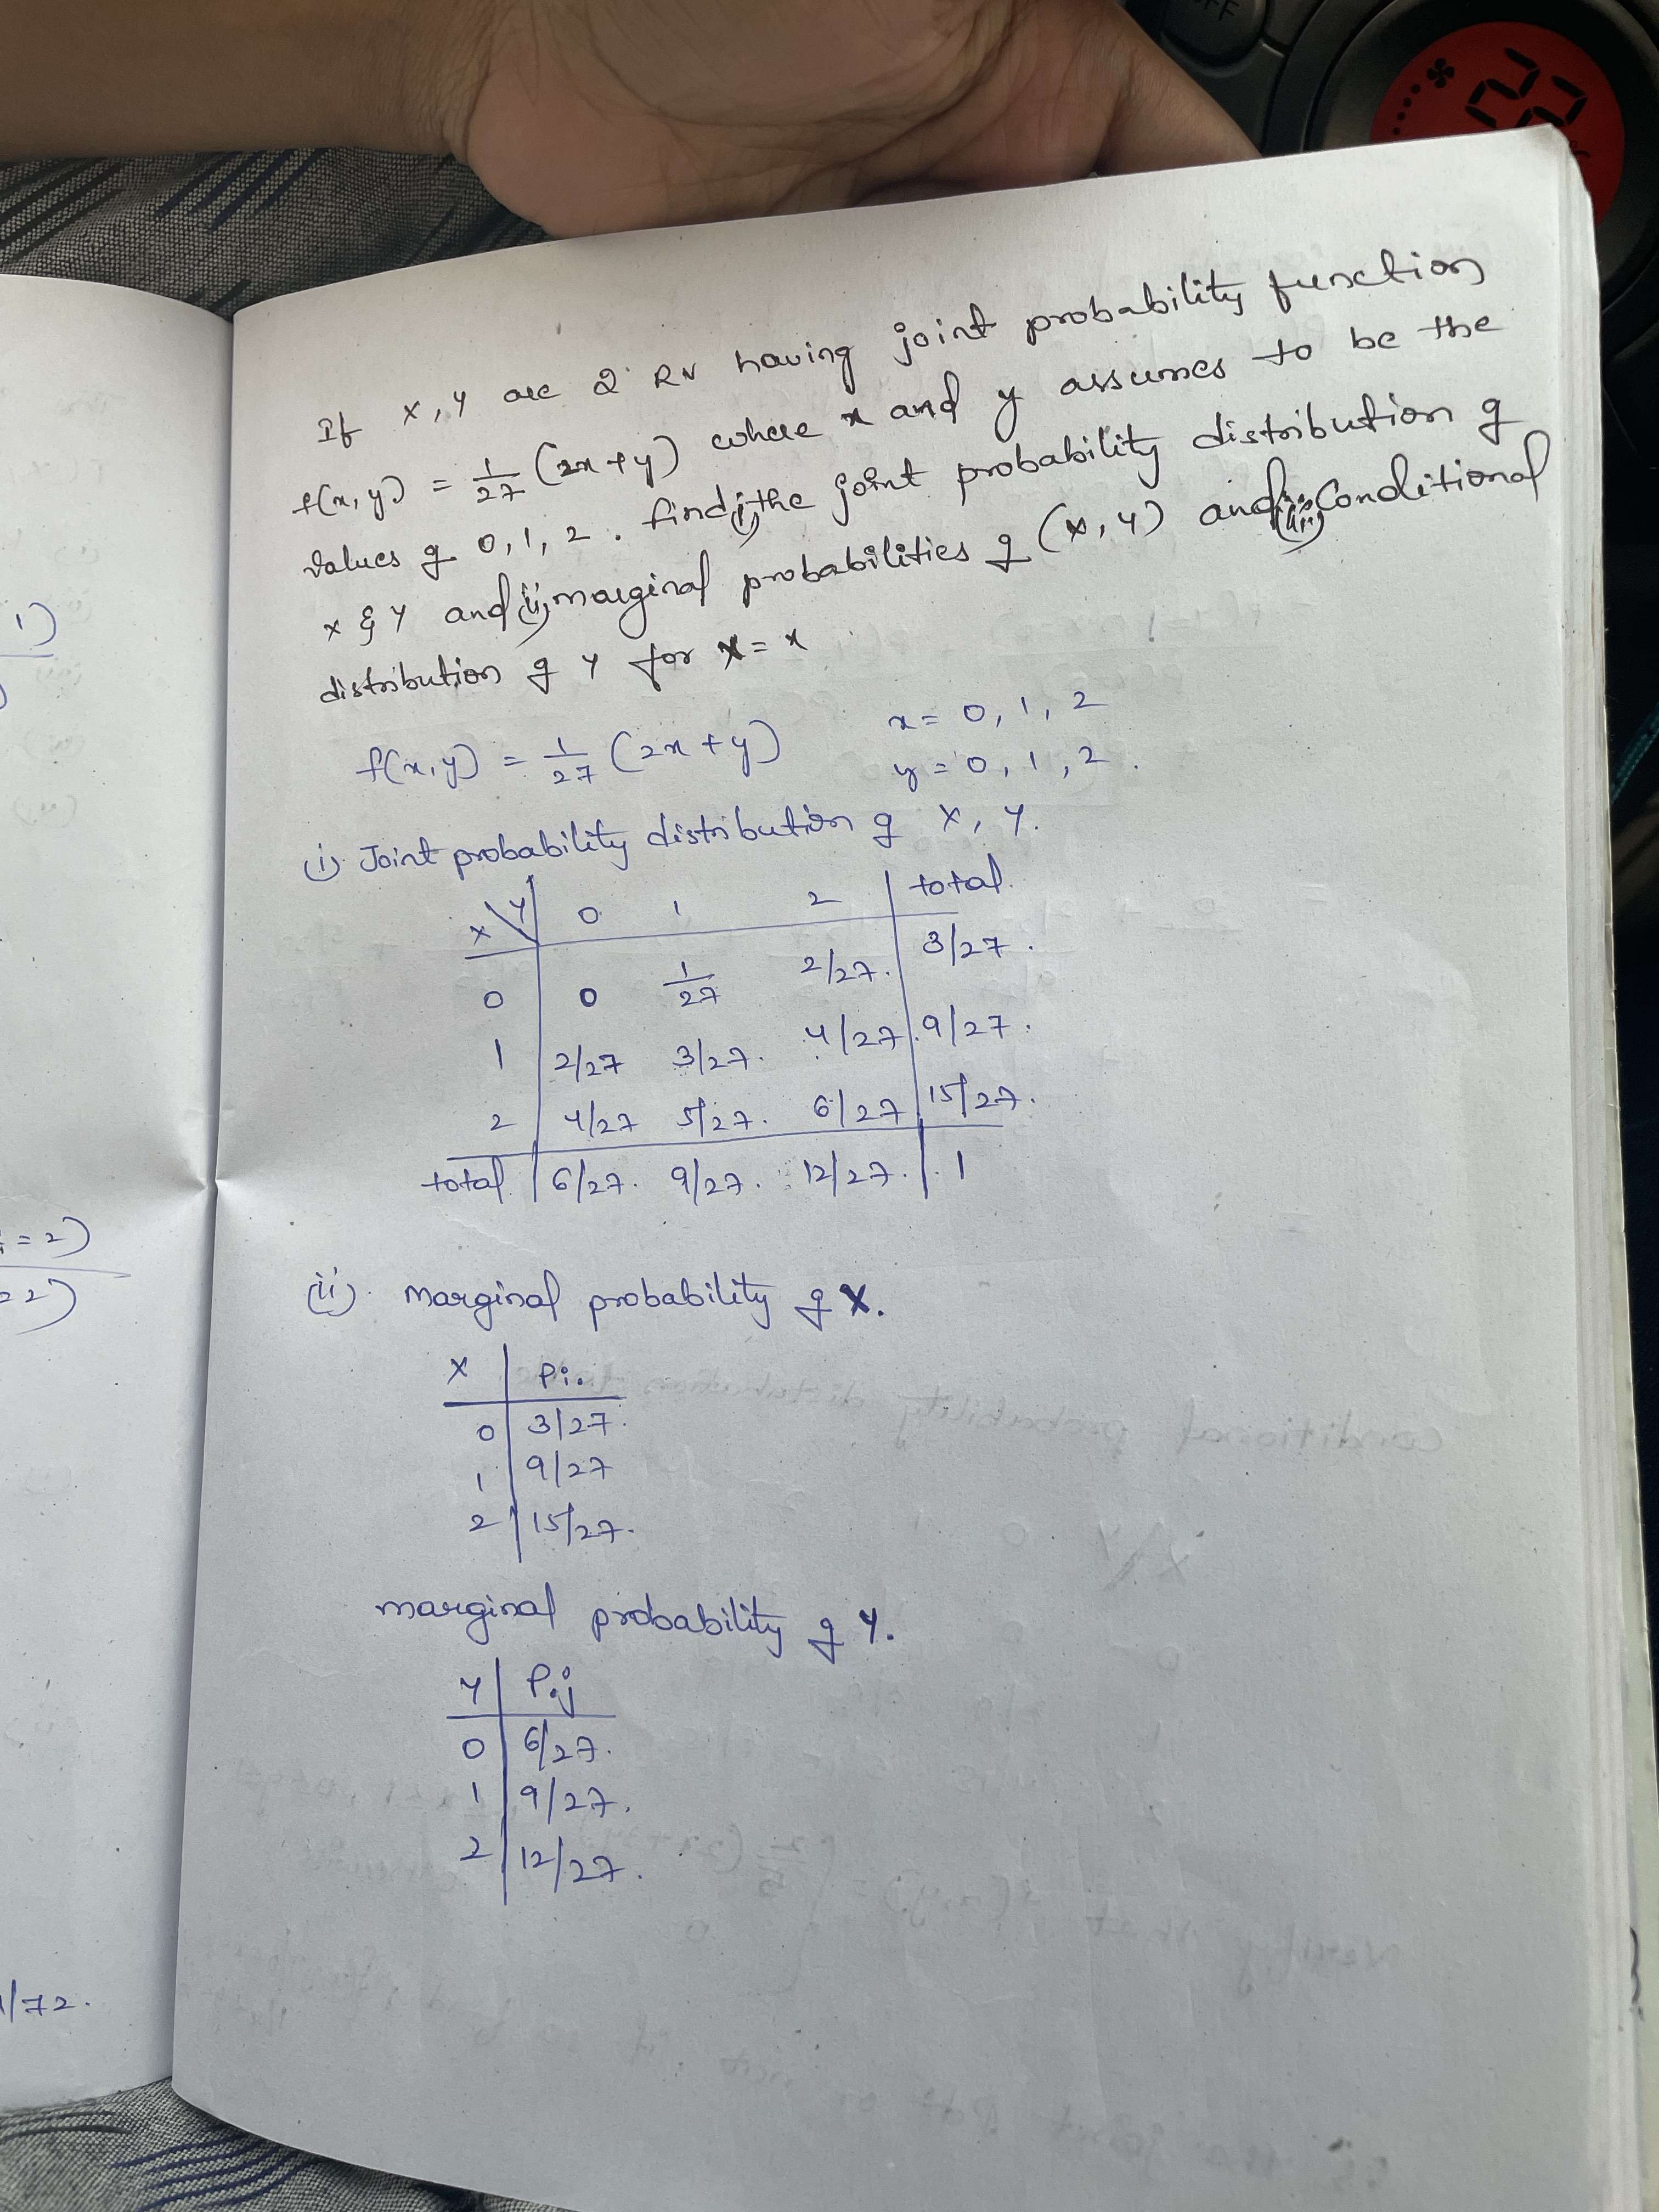 OFF
22
If X, Y are 2 RV having joint probability function
f(x,y) = 1/27 (2x+y) where x and y assumes to be the
values of 0, 1, 2. find (i) the joint probability distribution of
X & Y and (ii) marginal probabilities of (X, Y) and (iii) Conditional
distribution of Y for X = x
f(x,y) = 1/27 (2x+y) x = 0, 1, 2
y = 0, 1, 2.
(i) Joint probability distribution of X, Y.
X\Y 0 1 2 total
0 0 1/27 2/27. 3/27.
1 2/27 3/27. 4/27. 9/27.
2 4/27 5/27. 6/27 15/27.
total 6/27. 9/27. 12/27. 1
(ii) marginal probability of X.
X Pi.
0 3/27.
1 9/27
2 15/27.
marginal probability of Y.
Y P.j
0 6/27.
1 9/27.
2 12/27.
1)
= 2)
= 2)
/72.